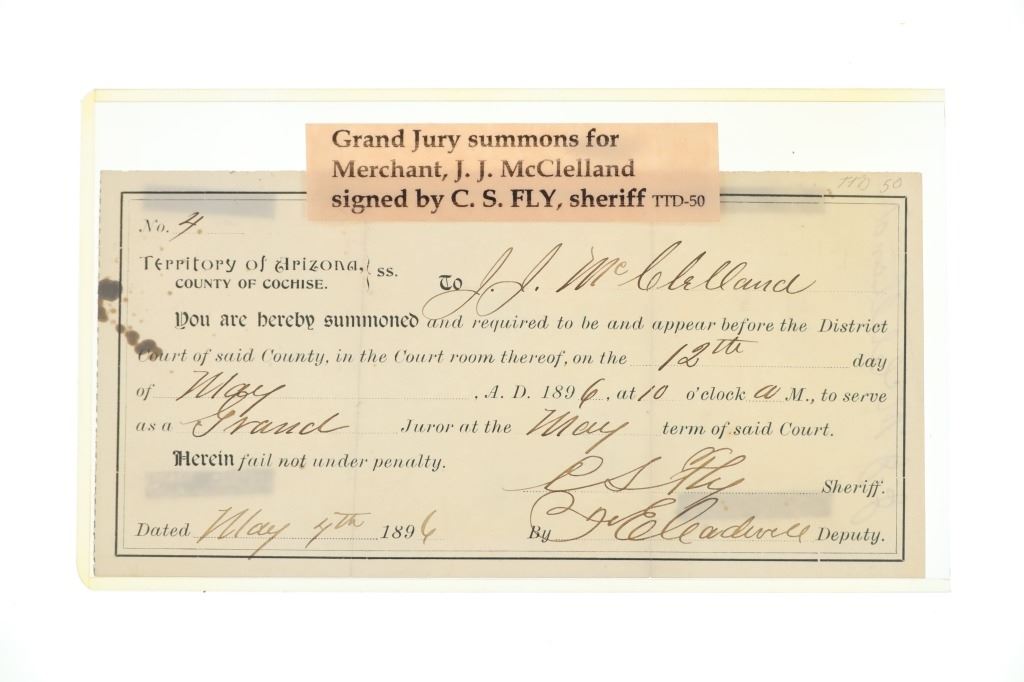 Grand Jury summons for
Merchant, J. J. McClelland
signed by C. S. FLY, sheriff TTD-50
TTD 50
No. 4
Territory of Arizona, } ss.
COUNTY OF COCHISE.
To J. J. McClelland
You are hereby summoned and required to be and appear before the District
Court of said County, in the Court room thereof, on the 12th day
of May, A. D. 1896, at 10 o'clock a M., to serve
as a Grand Juror at the May term of said Court.
Herein fail not under penalty.
C S Fly Sheriff.
Dated May 7th 1896 By Deputy.